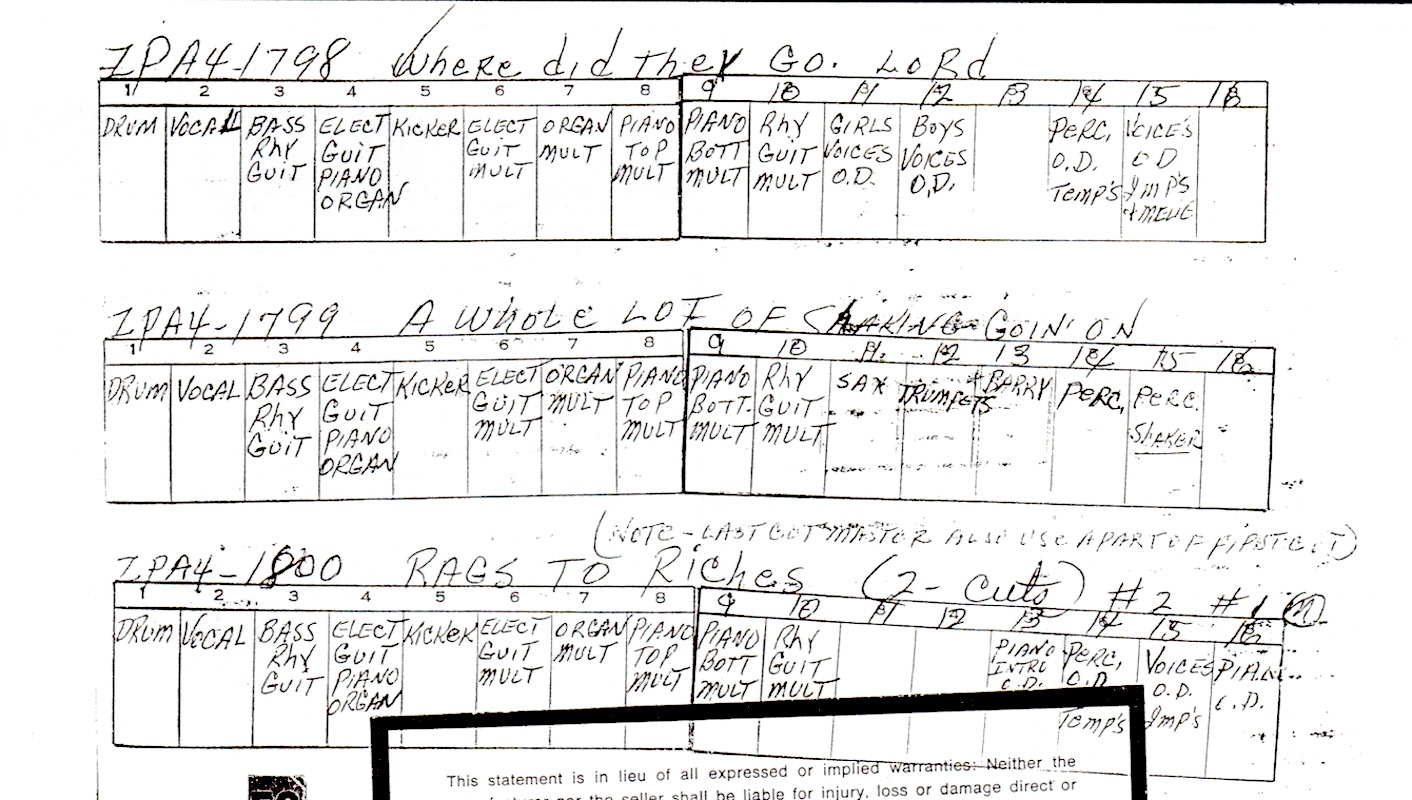 ZPA4-1798 Where did they Go. Lord
1 2 3 4 5 6 7 8 9 10 11 12 13 14 15 16
DRUM VOCAL BASS ELECT KICKER ELECT ORGAN PIANO PIANO Rhy GIRLS Boys PERC, VOICES
Rhy GUIT GUIT MULT TOP BOTT GUIT VOICES VOICES O.D. O D
GUIT PIANO MULT MULT MULT MULT O.D. O.D. Temp's Imp's
ORGAN
ZPA4-1799 A Whole LOT OF SHAKING GOIN' ON
1 2 3 4 5 6 7 8 9 10 11 12 13 14 15 16
DRUM VOCAL BASS ELECT KICKER ELECT ORGAN PIANO PIANO Rhy SAX TRUMPETS BARRY PERC, PERC.
Rhy GUIT GUIT MULT TOP BOTT. GUIT SHAKER
GUIT PIANO MULT MULT MULT MULT
ORGAN
(NOTE - LAST CUT MASTER ALSO USE A PART OF FIRST CUT)
ZPA4-1800 RAGS TO Riches (2-cuts) #2 #1 (M).
1 2 3 4 5 6 7 8 9 10 11 12 13 14 15 16
DRUM VOCAL BASS ELECT KICKER ELECT ORGAN PIANO PIANO Rhy PIANO PERC, VOICES PIANO
Rhy GUIT GUIT MULT TOP BOTT GUIT INTRO O.D. O.D. O.D.
GUIT PIANO MULT MULT MULT MULT O.D. Temp's Imp's
ORGAN
This statement is in lieu of all expressed or implied warranties: Neither the
nor the seller shall be liable for injury, loss or damage direct or